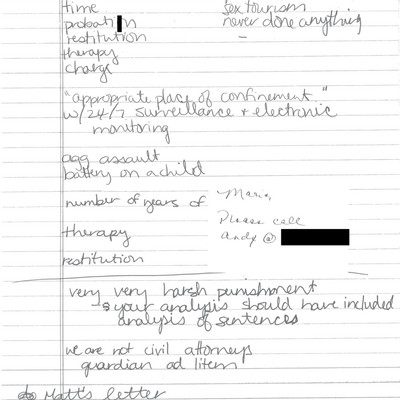 time
sex tourism
probation
never done anything
restitution
–
therapy
charge
"appropriate place of confinement"
w/ 24/7 surveillance + electronic
monitoring
agg assault
battery on a child
number of years of
Maria,
Please call
Andy @
therapy
restitution
very very harsh punishment
→ your analysis should have included
analysis of sentences
we are not civil attorneys
guardian ad litem
Matt's letter